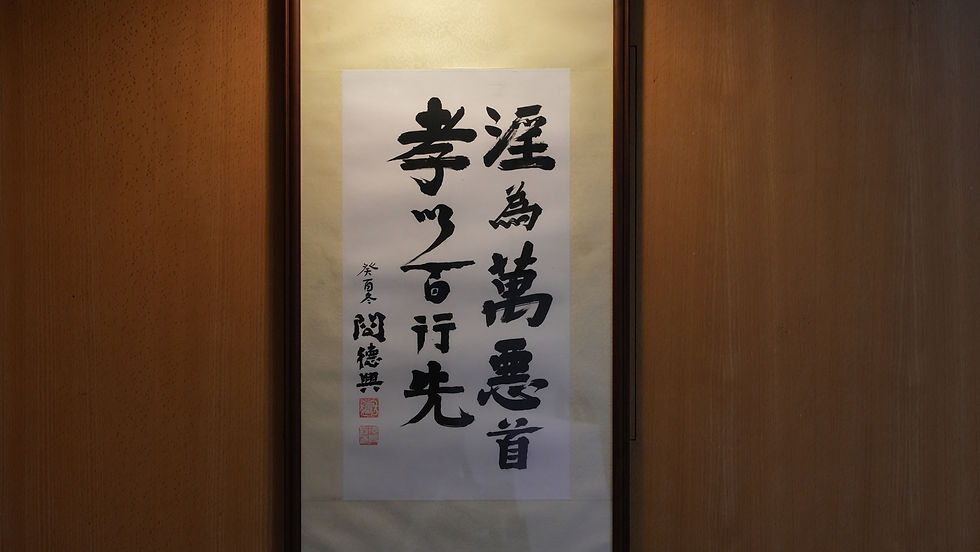 淫為萬惡首
孝以百行先
癸酉冬
閻德興